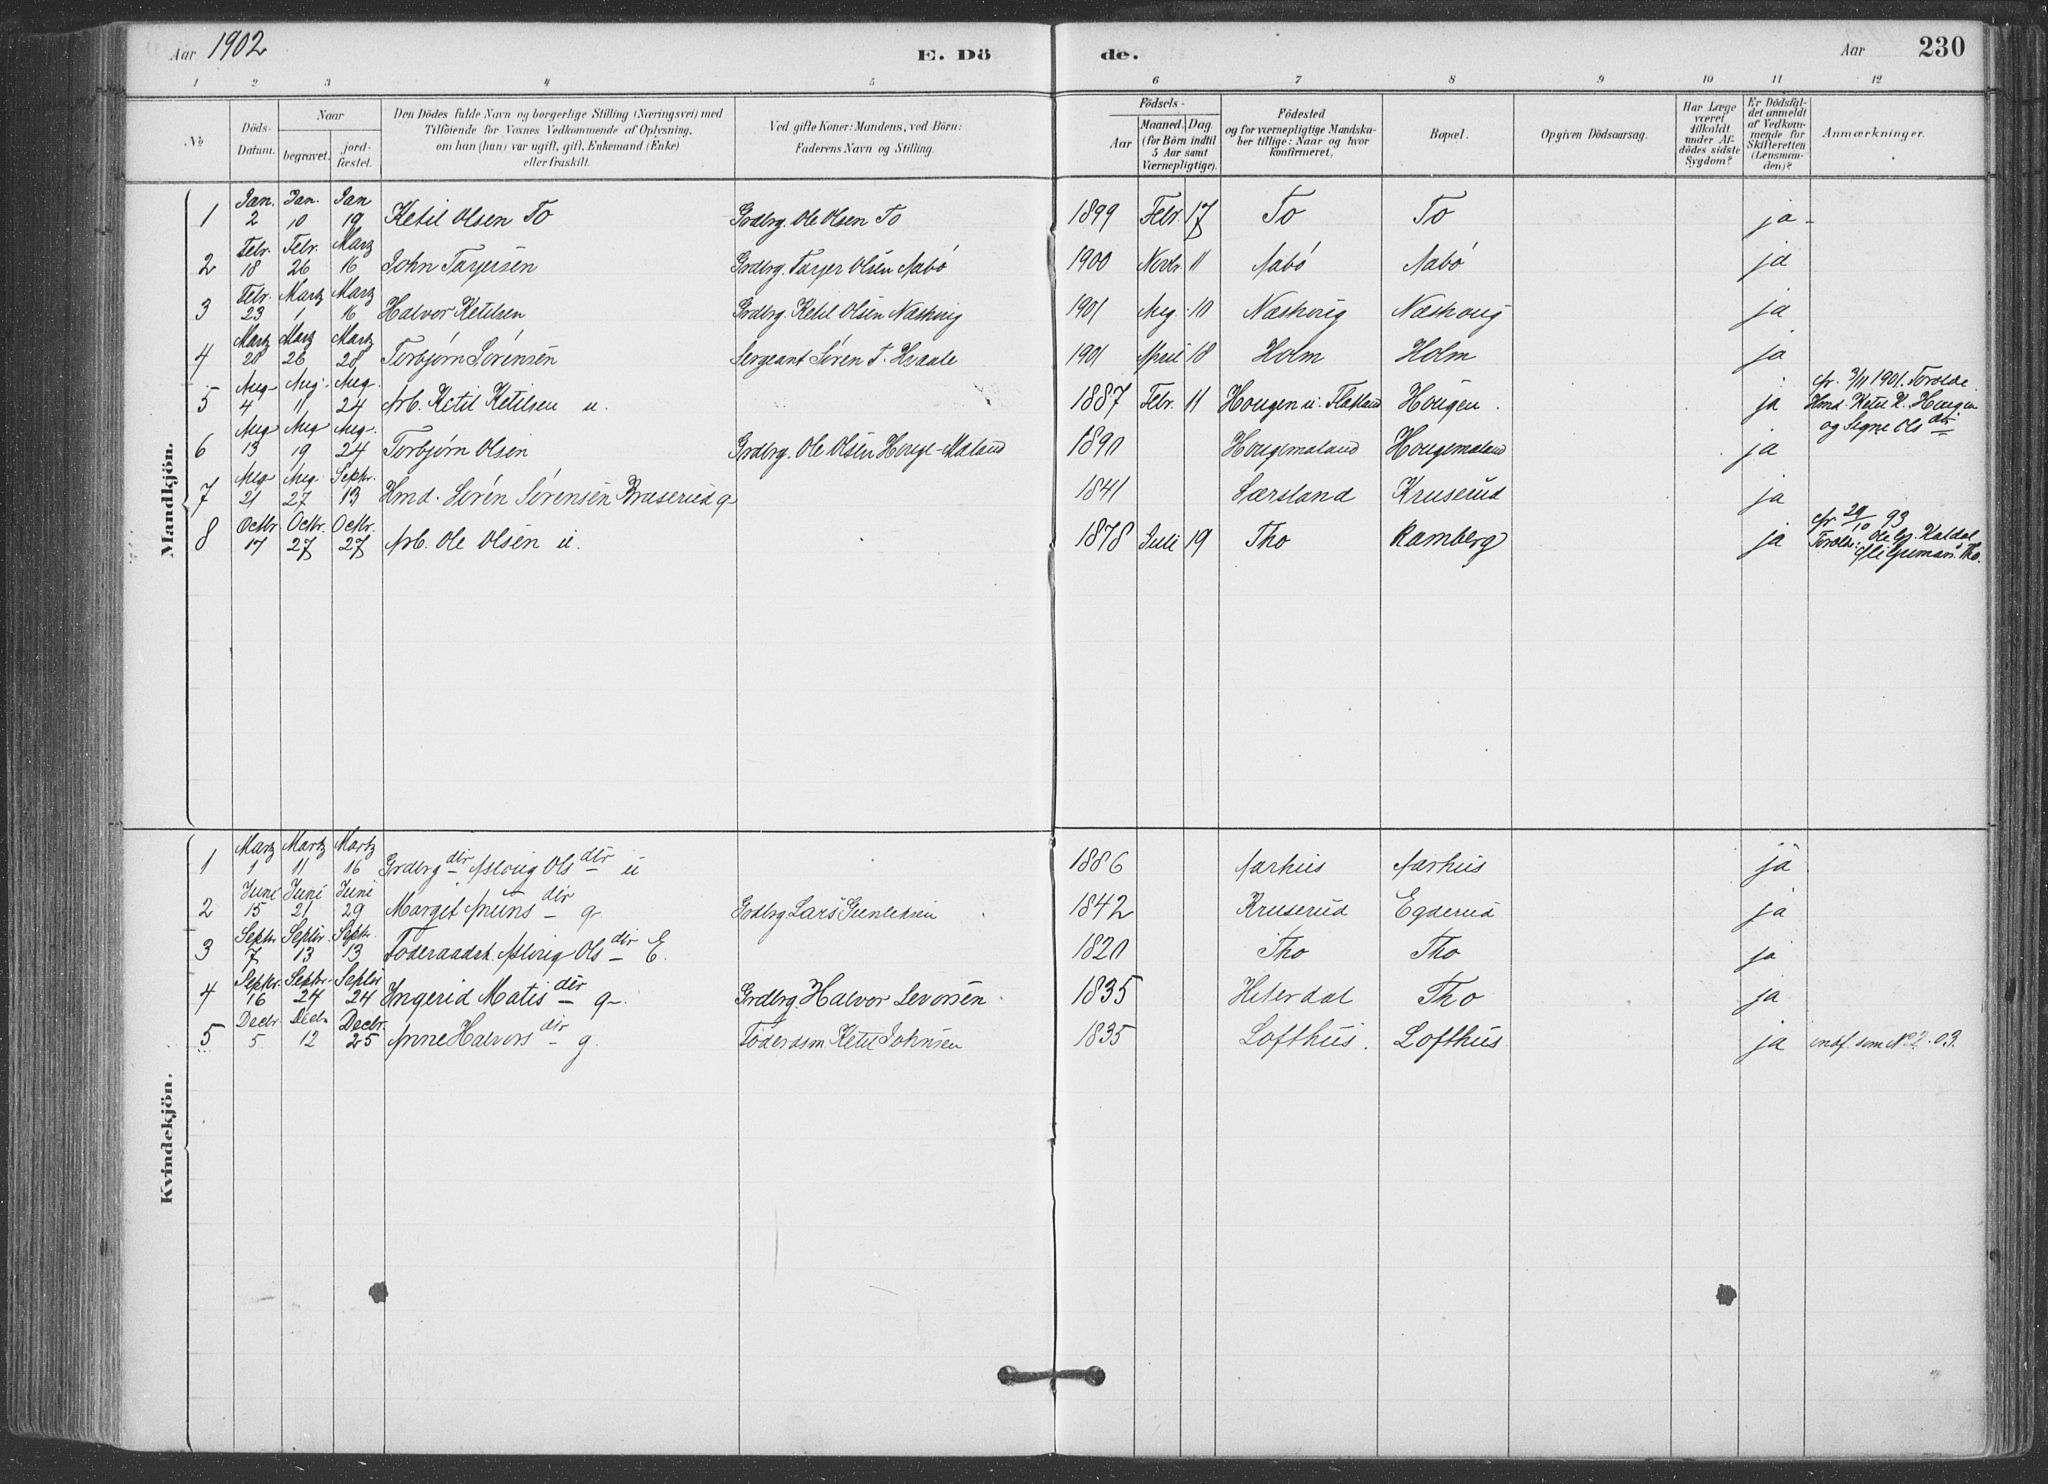 Aar 1902 E. Dö de. Aar 230
1 2 3 4 5 6 7 8 9 10 11 12
No
Döds-Datum.
Naar
begravet.
jord-fæstet.
Den Dödes fulde Navn og borgerlige Stilling (Næringsvei) med
Tilföiende for Voxnes Vedkommende af Oplysning,
om han (hun) var ugift, gift, Enkemand (Enke)
eller fraskilt.
Ved gifte Koner: Mandens, ved Börn:
Faderens Navn og Stilling.
Födsels-
Aar
Maaned. Dag.
(for Börn indtil
5 Aar samt
Værnepligtige).
Födested
og for værnepligtige Mandska-
ber tillige: Naar og hvor
konfirmeret.
Bopæl.
Opgiven Dödsaarsag.
Har Læge
været
tilkaldt
under Af-
dödes sidste
Sygdom?
Er Dödsfal-
det anmeldt
af Vedkom-
mende for
Skifteretten
(Lensman-
den)?
Anmærkninger.
Mandkjön.
1 Jan. 2 Jan. 10 Jan 19 Ketil Olsen To Grdbrg. Ole Olsen To 1899 Febr. 17 To To ja
2 Febr. 18 Febr. 26 Martz 16 John Tarjeisen Grdbrg. Tarjer Olsen Aabö 1900 Novbr 11 Aabö Aabö ja
3 Febr. 23 Martz 1 Martz 16 Halvor Ketilsen Grdbrg. Ketil Olsen Næshoug 1901 Aug. 10 Næshoug Næshoug ja
4 Martz 20 Martz 26 Martz 28 Torbjørn Sørensen Sergeant Søren T. 1901 April 18 Holm Holm ja
5 Aug 4 Aug. 11 Aug. 24 Arb. Ketil Ketilsen u. 1887 Febr. 11 Hougen u. Flatland Hougen ja 1901. Forældre
Hmd. Ketil K. Hougen
og Signe Ols dtr
6 Aug 13 Aug 19 Aug. 24 Torbjørn Olsen Grdbrg. Ole Olsen Houge-Maland 1890 Hougemaland Hougemaland ja
7 Aug 21 Aug. 27 Septr. 13 Hmd. Søren Sørensen Kruserud g 1841 Særsland Kruserud ja
8 Octbr 17 Octbr. 27 Octbr. 27 Arb. Ole Olsen u. 1878 Juli 19 Tho Ramberg ja 29/10 93
Forældr: Ole Kaldal
Tho.
Kvindekjön.
1 Martz 1 Martz 11 Martz 16 Grdbrg dtr Asloug Ols dtr u 1886 Aarhus Aarhus ja
2 Juni 15 Juni 21 Juni 29 Margit Auuns dtr g. Grdbrg Lars Gunleksen 1842 Kruserud Egderud ja
3 Septr 7 Septbr 13 Septr. 13 Föderaadsk. Asloug Ols dtr E. 1820 Tho Tho ja
4 Septbr. 16 Septbr. 24 Septbr 24 Ingerid Matis dtr g. Grdbrg. Halvor Levorsen 1835 Hiterdal Tho ja
5 Decbr 5 Decbr 12 Decbr. 25 Anne Halvors dtr g. Föderdsm Ketil Johnsen 1835 Lofthus. Lofthus ja indf. som No 2. 03.